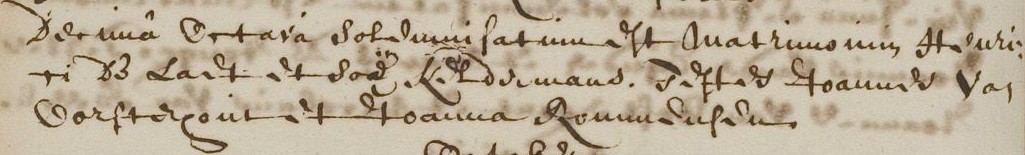 Decima Octava Solemnisatum est Matrimonium Henri:
ci D Laet et Keldermans. Testes Joannes Van
Oorstegout et Joanna Rommensen.